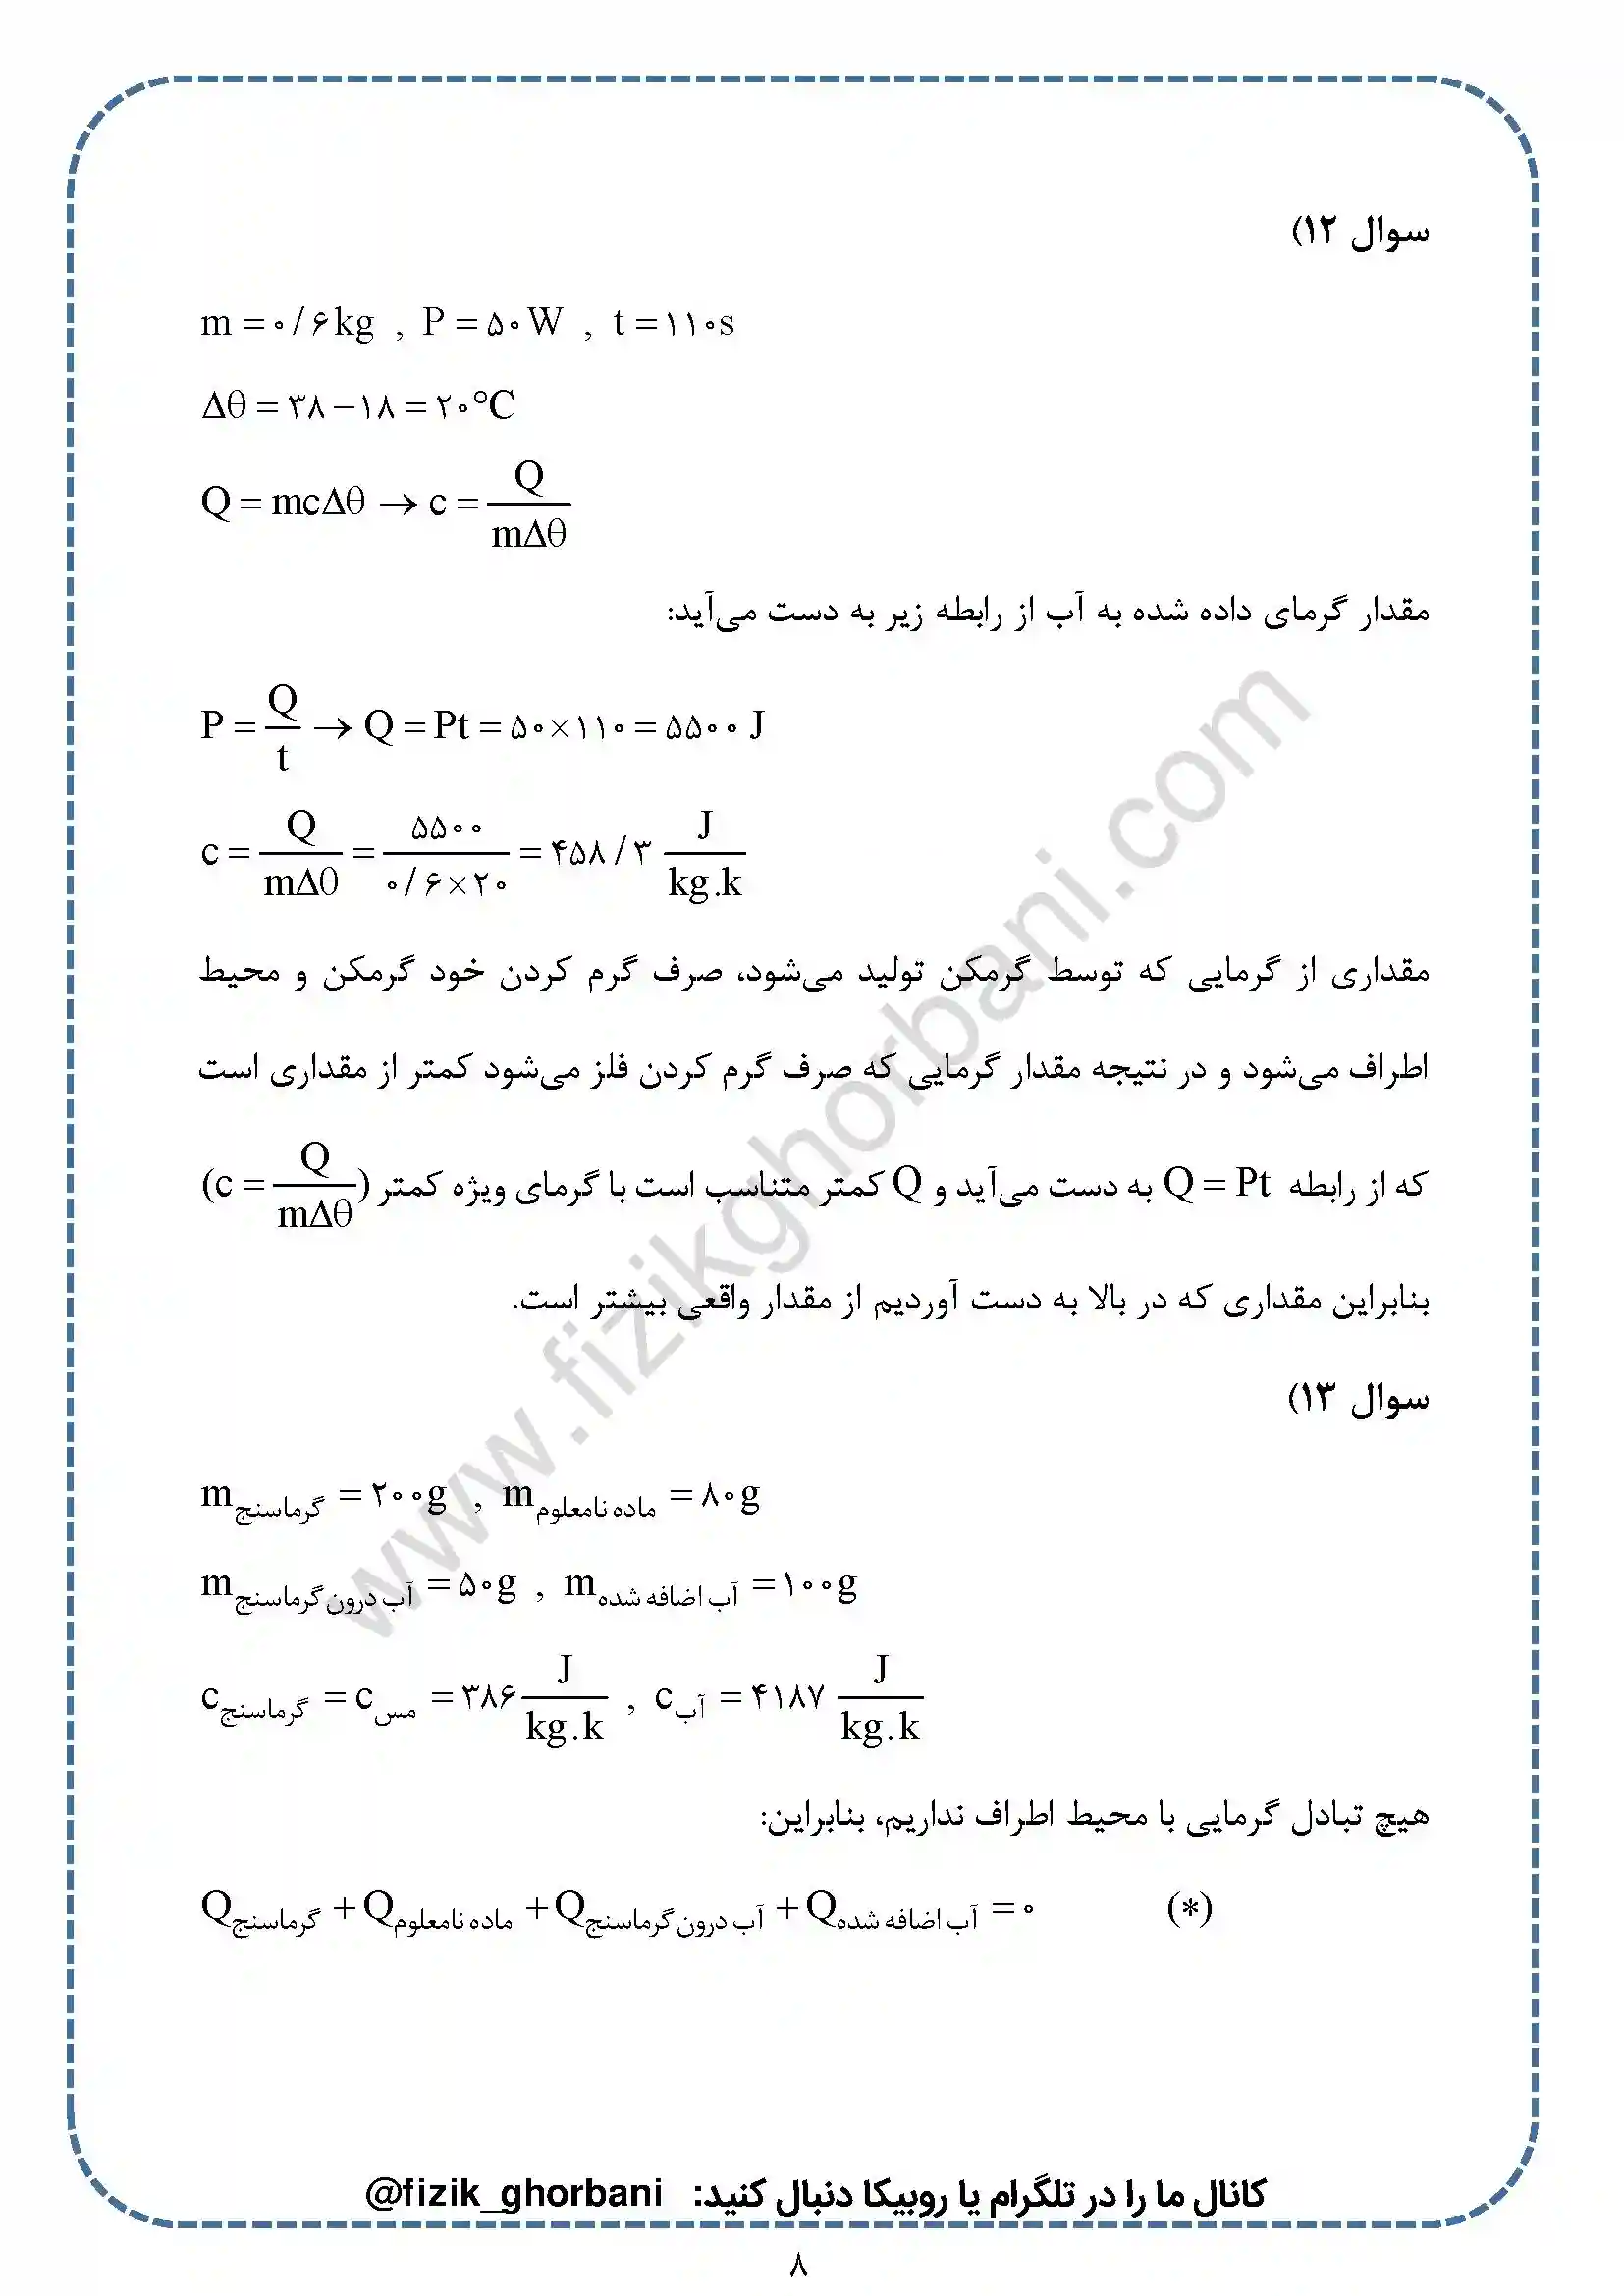 سوال ۱۲)
m = ۰/۶ kg , P = ۵۰ W , t = ۱۱۰ s
Δθ = ۳۸ − ۱۸ = ۲۰°C
Q = mcΔθ → c = Q / mΔθ
مقدار گرمای داده شده به آب از رابطه زیر به دست می‌آید:
P = Q / t → Q = Pt = ۵۰ × ۱۱۰ = ۵۵۰۰ J
c = Q / mΔθ = ۵۵۰۰ / ۰/۶ × ۲۰ = ۴۵۸/۳ J / kg.k
مقداری از گرمایی که توسط گرمکن تولید می‌شود، صرف گرم کردن خود گرمکن و محیط
اطراف می‌شود و در نتیجه مقدار گرمایی که صرف گرم کردن فلز می‌شود کمتر از مقداری است
که از رابطه Q = Pt به دست می‌آید و Q کمتر متناسب است با گرمای ویژه کمتر (c = Q / mΔθ)
بنابراین مقداری که در بالا به دست آوردیم از مقدار واقعی بیشتر است.
سوال ۱۳)
m گرماسنج = ۲۰۰g , m ماده نامعلوم = ۸۰g
m آب درون گرماسنج = ۵۰g , m آب اضافه شده = ۱۰۰g
c گرماسنج = c مس = ۳۸۶ J / kg.k , c آب = ۴۱۸۷ J / kg.k
هیچ تبادل گرمایی با محیط اطراف نداریم، بنابراین:
Q گرماسنج + Q ماده نامعلوم + Q آب درون گرماسنج + Q آب اضافه شده = ۰ (*)
www.fizikghorbani.com
کانال ما را در تلگرام یا روبیکا دنبال کنید: @fizik_ghorbani
۸